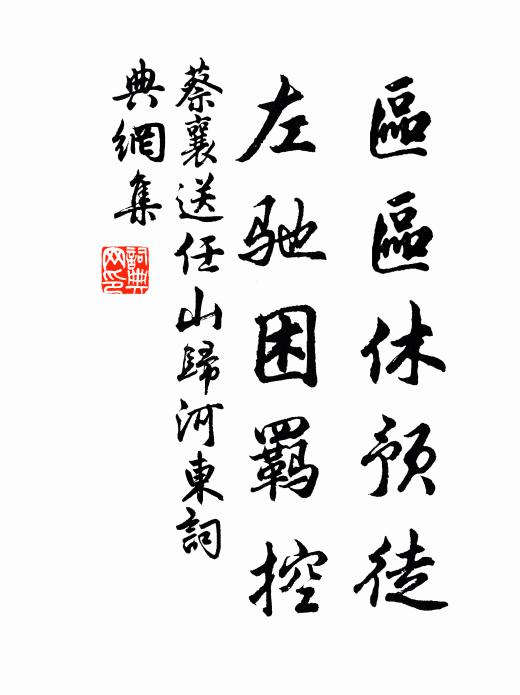 區區休預徒
左馳困羈控
蔡襄送任山歸河東詞
典網集
詞典網印